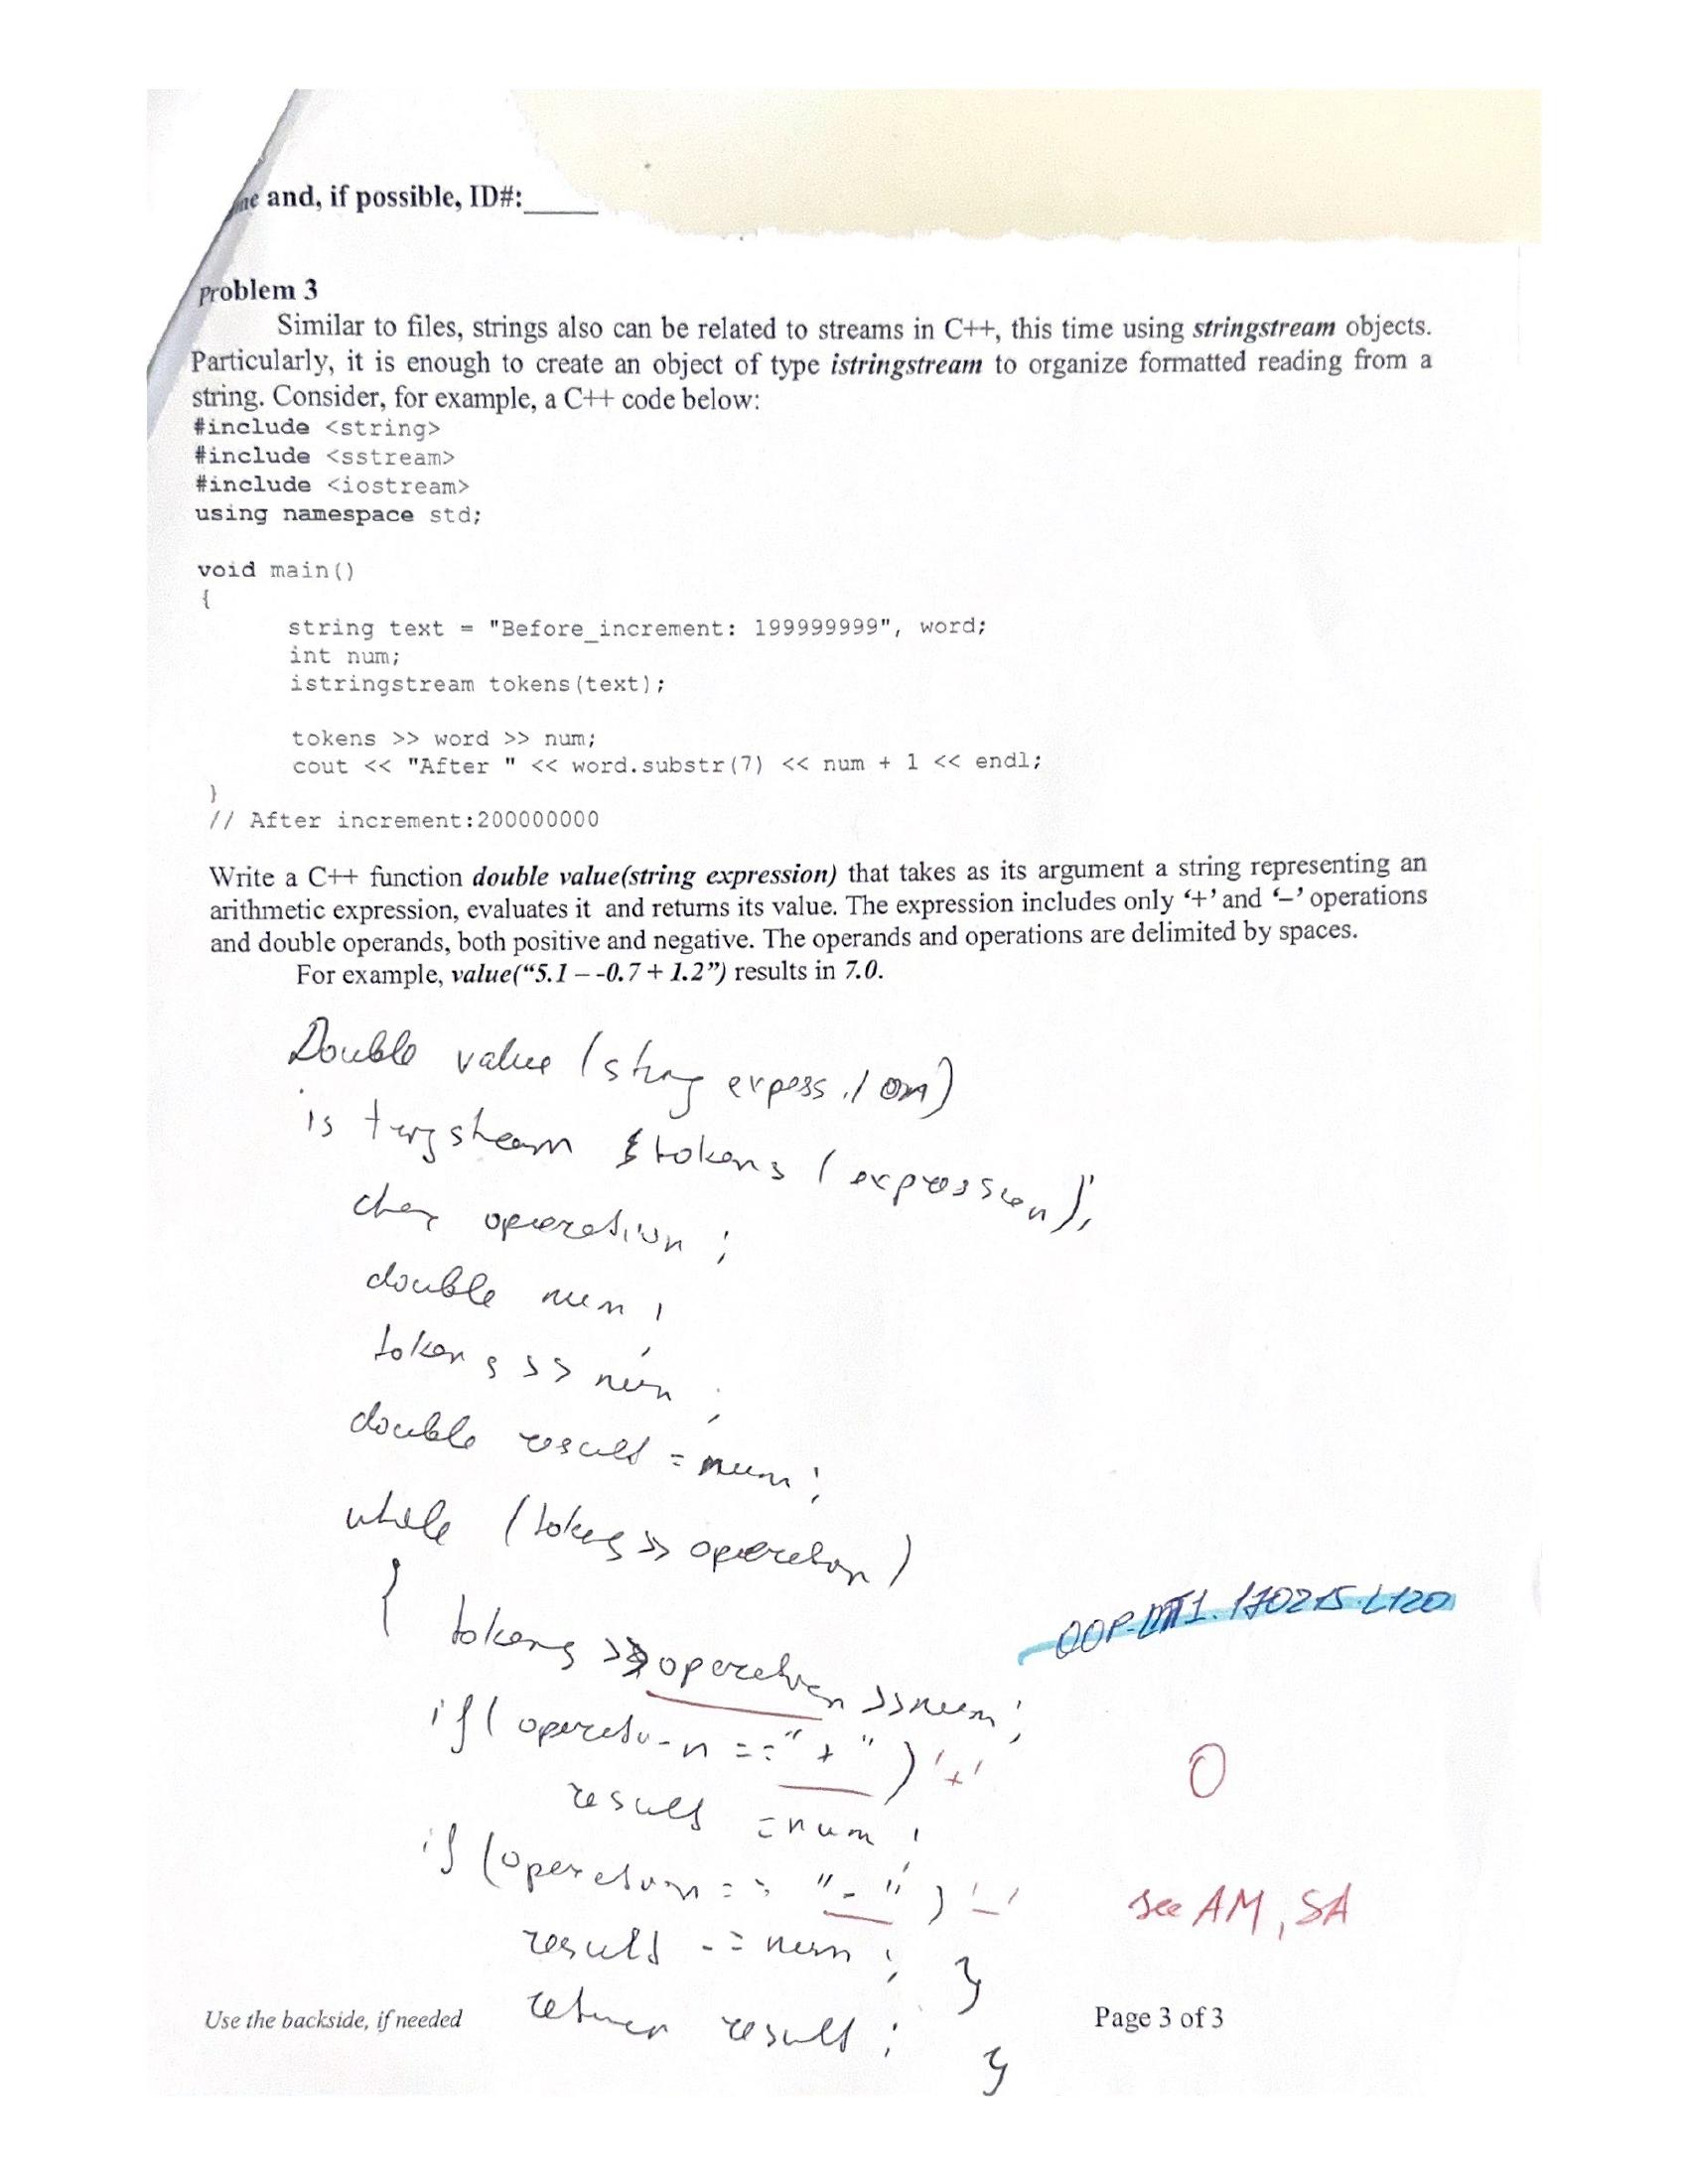 and, if possible, ID#:_____
problem 3
Similar to files, strings also can be related to streams in C++, this time using stringstream objects.
Particularly, it is enough to create an object of type istringstream to organize formatted reading from a
string. Consider, for example, a C++ code below:
#include <string>
#include <sstream>
#include <iostream>
using namespace std;
void main()
{
string text = "Before_increment: 199999999", word;
int num;
istringstream tokens(text);
tokens >> word >> num;
cout << "After " << word.substr(7) << num + 1 << endl;
}
// After increment:200000000
Write a C++ function double value(string expression) that takes as its argument a string representing an
arithmetic expression, evaluates it and returns its value. The expression includes only ‘+’ and ‘–’ operations
and double operands, both positive and negative. The operands and operations are delimited by spaces.
For example, value(“5.1 – -0.7 + 1.2”) results in 7.0.
Double value (string expession)
istringstream tokens (expression);
char operation ;
double num ;
tokens >> num ;
double result = num ;
while (tokens >> operation)
{ tokens >> operation >> num ;
if ( operation == "+" ) '+'
result = num ;
if (operation == "-" ) '-'
result -= num ; }
return result ;
}
OOP.MT1.170215.L120
0
see AM, SA
Use the backside, if needed
Page 3 of 3